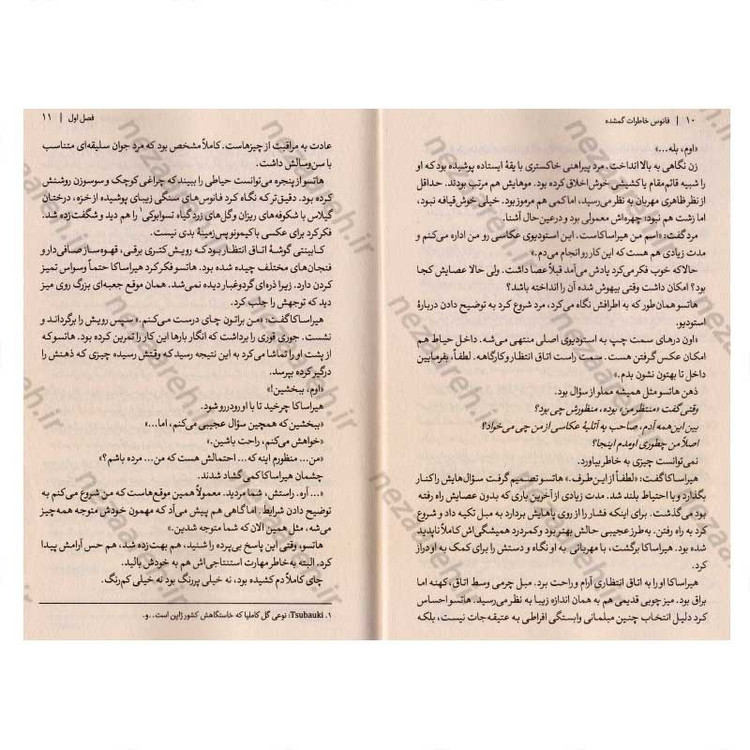 ۱۰ | فانوس خاطرات گمشده
«اوم، بله...»
زن نگاهی به بالا انداخت. مرد پیراهنی خاکستری با یقهٔ ایستاده پوشیده بود که او
را شبیه قائم‌مقام یا کشیشی خوش‌اخلاق کرده بود. موهایش هم مرتب بودند. حداقل
از نظر ظاهری مهربان به نظر می‌رسید، اما کمی هم مرموز بود. خیلی خوش‌قیافه نبود،
اما زشت هم نبود؛ چهره‌اش معمولی بود و درعین‌حال آشنا.
مرد گفت: «اسم من هیراساکاست. این استودیوی عکاسی رو من اداره می‌کنم و
مدت زیادی هم هست که این کار رو انجام می‌دم.»
حالا که خوب فکر می‌کرد یادش می‌آمد قبلاً عصا داشت. ولی حالا عصایش کجا
بود؟ امکان داشت وقتی بیهوش شده آن را انداخته باشد؟
هاتسو همان‌طور که به اطرافش نگاه می‌کرد، مرد شروع کرد به توضیح دادن دربارهٔ
استودیو.
«اون درهای سمت چپ به استودیوی اصلی منتهی می‌شه. داخل حیاط هم
امکان عکس گرفتن هست. سمت راست اتاق انتظار و کارگاهه. لطفاً، بفرمایین
داخل تا بهتون نشون بدم.»
ذهن هاتسو مثل همیشه مملو از سؤال بود.
وقتی گفت «منتظر من» بوده، منظورش چی بود؟
بین این‌همه آدم، صاحب به آتلیهٔ عکاسی از من چی می‌خواد؟
اصلاً من چطوری اومدم اینجا؟
نمی‌توانست چیزی به خاطر بیاورد.
هیراساکا گفت: «لطفاً از این طرف.» هاتسو تصمیم گرفت سؤال‌هایش را کنار
بگذارد و با احتیاط بلند شد. مدت زیادی از آخرین باری که بدون عصایش راه رفته
بود می‌گذشت. برای اینکه فشار را از روی پاهایش بردارد به مبل تکیه داد و شروع
کرد به راه رفتن. به‌طرز عجیبی حالش بهتر بود و کمردرد همیشگی‌اش کاملاً ناپدید
شده بود. هیراساکا برگشت، با مهربانی به او نگاه و دستش را برای کمک به او دراز
کرد.
هیراساکا او را به اتاق انتظاری آرام و راحت برد. مبل چرمی وسط اتاق، کهنه اما
براق بود. میز چوبی قدیمی هم به همان اندازه زیبا به نظر می‌رسید. هاتسو احساس
کرد دلیل انتخاب چنین مبلمانی وابستگی افراطی به عتیقه‌جات نیست، بلکه
فصل اول | ۱۱
عادت به مراقبت از چیزهاست. کاملاً مشخص بود که مرد جوان سلیقه‌ای متناسب
با سن‌وسالش داشت.
هاتسو از پنجره می‌توانست حیاطی را ببیند که چراغی کوچک و سوسوزن روشنش
کرده بود. دقیق‌تر که نگاه کرد فانوس‌های سنگی زیبای پوشیده از خزه، درختان
گیلاس با شکوفه‌های ریزان و گل‌های زرد گیاه تسوباوکی۱ را هم دید و شگفت‌زده شد.
فکر کرد برای عکسی با کیمونو پس‌زمینهٔ بدی نیست.
کابینتی گوشهٔ اتاق انتظار بود که رویش کتری برقی، قهوه‌ساز صافی‌دار و
فنجان‌های مختلف چیده شده بود. هاتسو فکر کرد هیراساکا حتماً وسواس تمیز
کردن دارد. زیرا ذره‌ای گردوغبار دیده نمی‌شد. همان موقع جعبه‌ای بزرگ روی میز
دید که توجهش را جلب کرد.
هیراساکا گفت: «من براتون چای درست می‌کنم.» سپس رویش را برگرداند و
نشست. جوری قوری را برداشت که انگار بارها این کار را تمرین کرده بود. هاتسو که
از پشت او را تماشا می‌کرد به این نتیجه رسید که وقتش رسیده چیزی که ذهنش را
درگیر کرده بپرسد.
«اوم، ببخشین!»
هیراساکا چرخید تا با او رودررو شود.
«ببخشین که همچین سؤال عجیبی می‌کنم، اما...»
«خواهش می‌کنم، راحت باشین.»
«من... منظورم اینه که... احتمالش هست که من... مرده باشم؟»
چشمان هیراساکا کمی گشاد شدند.
«... آره. راستش، شما مردید. معمولاً همین موقع‌هاست که من شروع می‌کنم به
توضیح دادن شرایط. اما گاهی هم پیش می‌آد که مهمون خودش متوجه همه‌چیز
می‌شه، مثل همین الان که شما متوجه شدین.»
هاتسو، وقتی این پاسخ بی‌پرده را شنید، هم بهت‌زده شد، هم حس آرامش پیدا
کرد. البته به خاطر مهارت استنتاجی‌اش هم به خودش بالید.
چای کاملاً دم کشیده بود، نه خیلی پررنگ بود نه خیلی کم‌رنگ.
۱. Tsubauki: نوعی گل کاملیا که خاستگاهش کشور ژاپن است.ـ.و.
nezaareh.ir